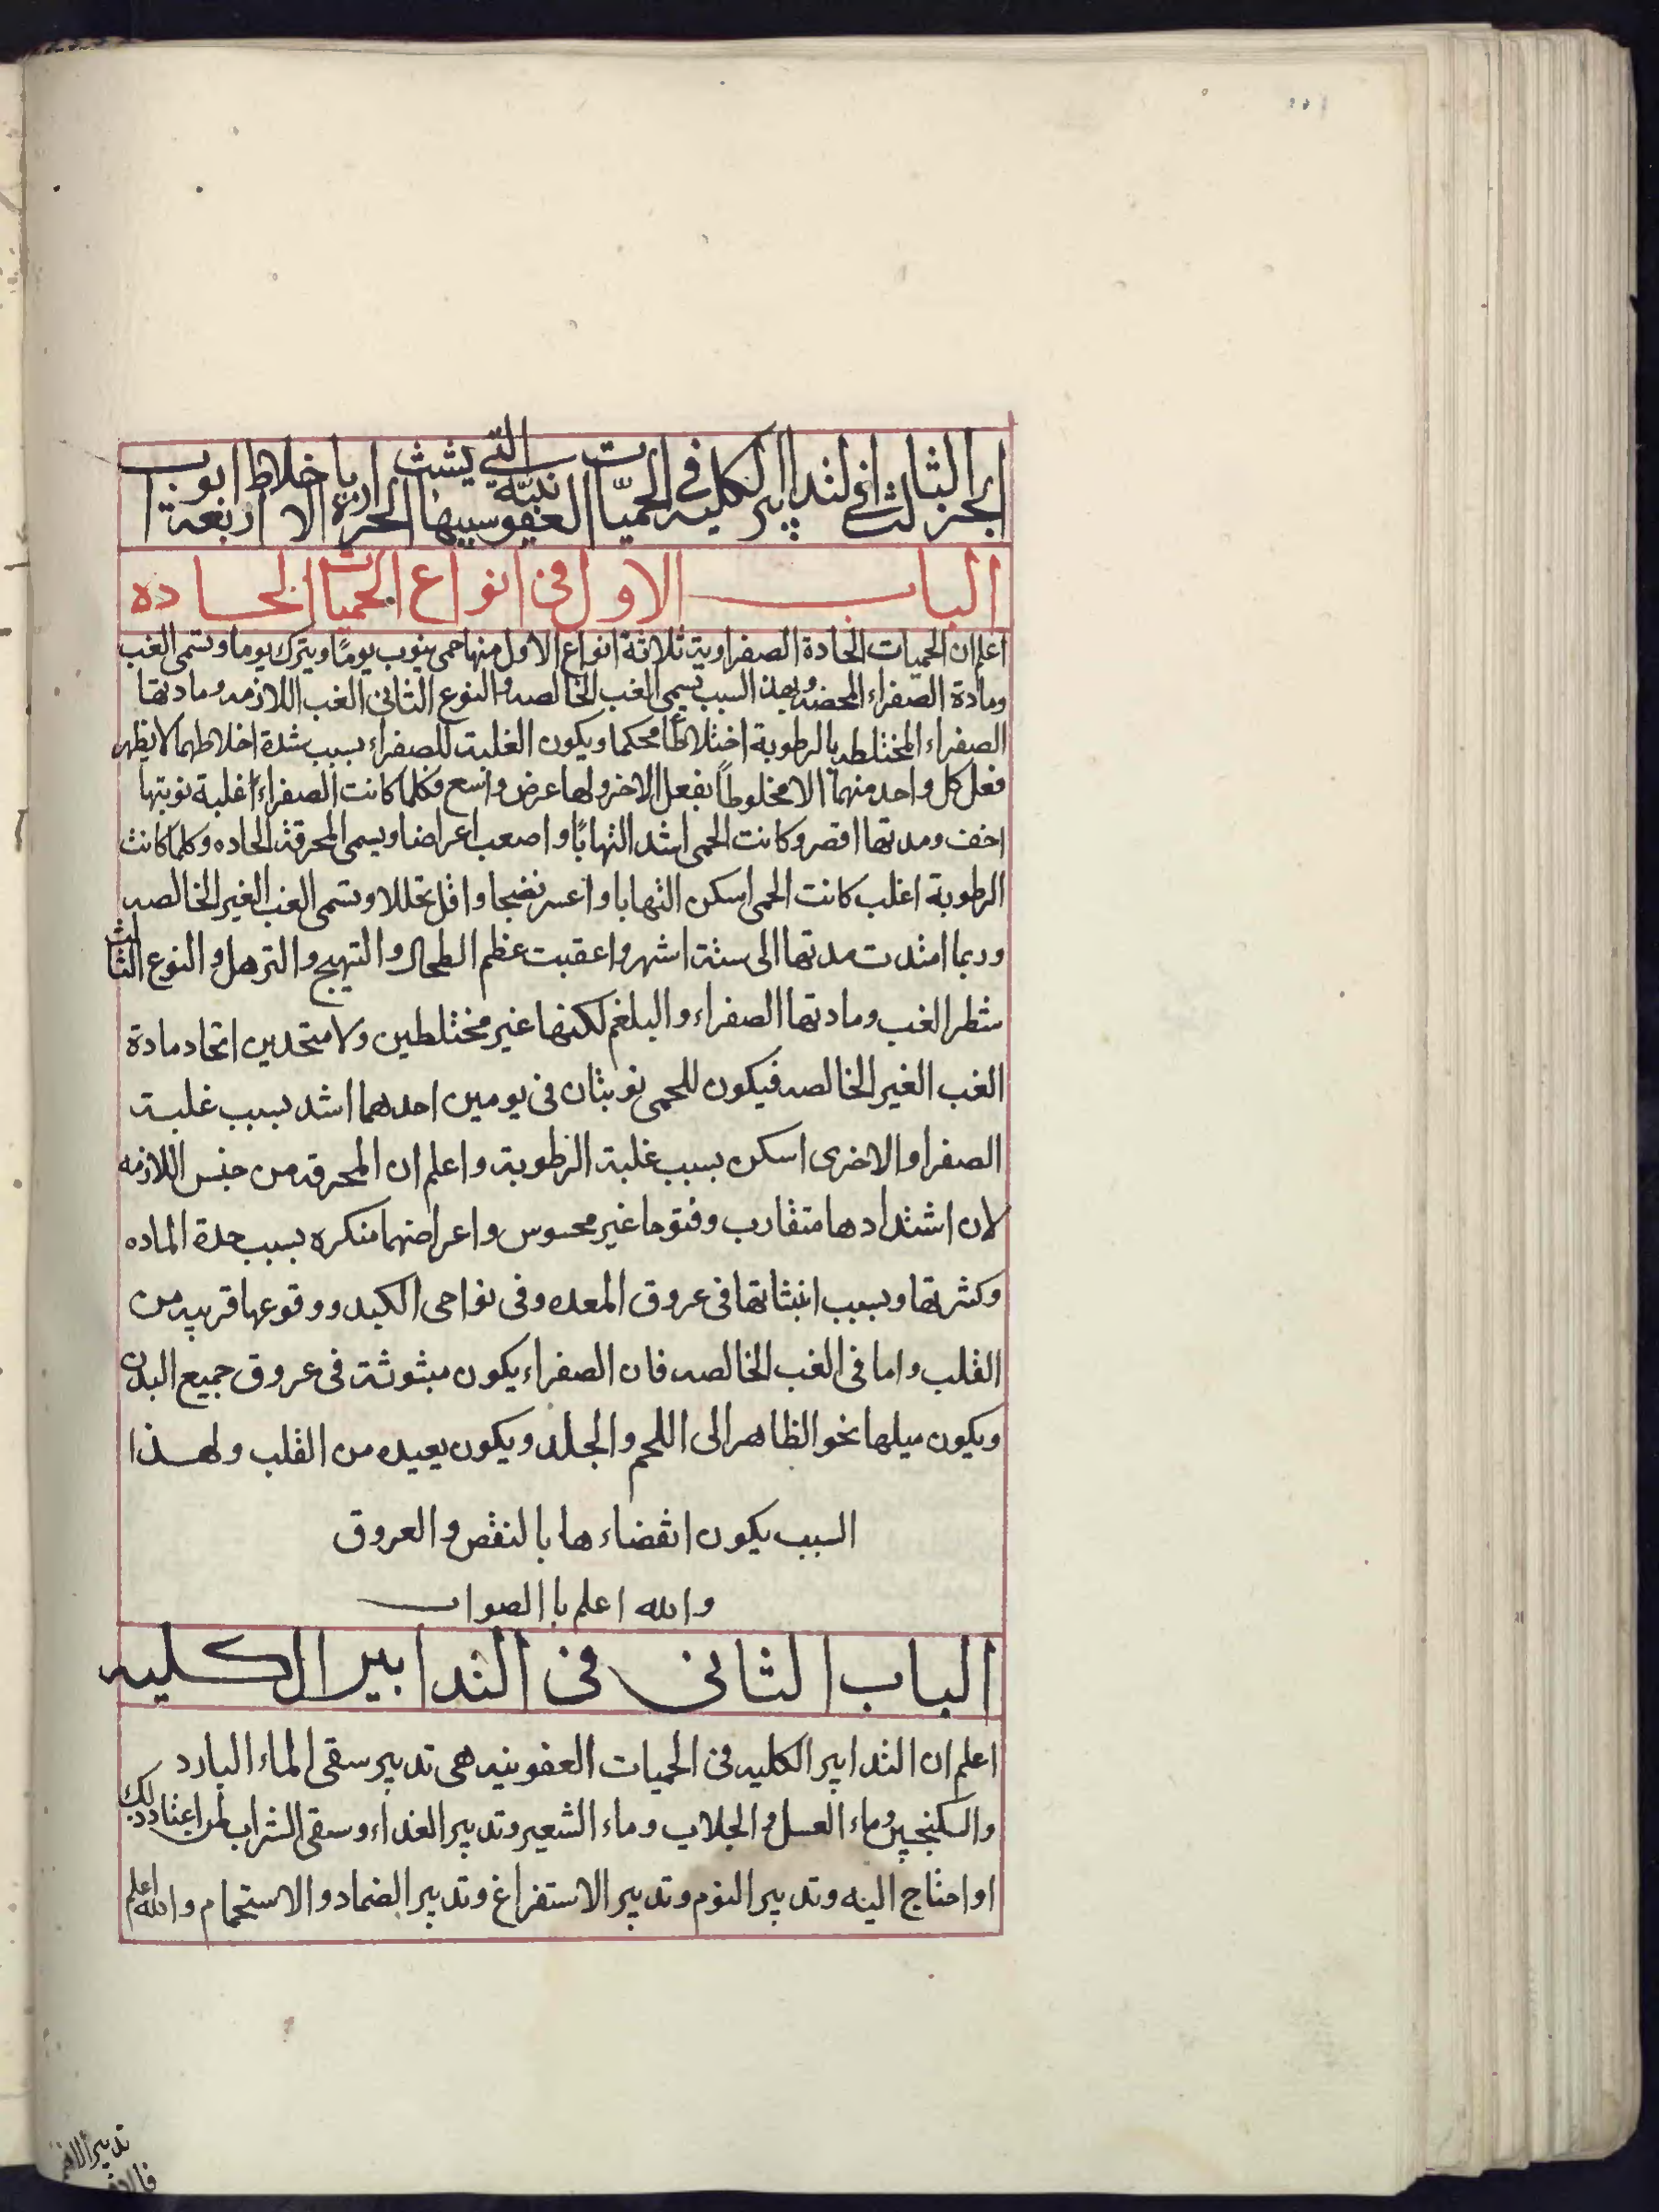 الجزء الثالث في التدابير الكلية في الحميّات العفونية التي يشتد سببها الحرارة باخلاط الاربعة ابواب
الباب الاول في انواع الحميات الحاده
اعلم ان الحميات الحادة الصفراوية ثلاثة انواع الاول منها حمى ينوب يومًا ويترك يوما وتسمى الغب
ومادة الصفراء المحضه وبهذ السبب يسمى الغب الخالصه والنوع الثانى الغب اللازمه ومادتها
الصفراء المختلطه بالرطوبة اختلاطًا محكما ويكون الغلبة للصفراء بسبب شدة اخلاطهما لا يظهر
فعل كل واحد منهما الا مخلوطاً بفعل الاخر ولها عرض واسع فكلما كانت الصفراء اغلبة نوبتها
اخف ومدتها اقصر وكانت الحمى اشد التهابًا واصعب اعراضا ويسمى المحرقة الحاده وكلما كانت
الرطوبة اغلب كانت الحمى اسكن التهابا واعسر نضجا واقل تحللا وتسمى الغب الغير الخالصه
وربما امتدت مدتها الى ستة اشهر واعقبت عظم الطحال والتهيج والترهل والنوع الثالث
شطر الغب ومادتها الصفراء والبلغم لكنها غير مختلطين ولا متحدين اتحاد مادة
الغب الغير الخالصه فيكون للحمى نوبتان فى يومين احدهما اشد بسبب غلبة
الصفرا والاخرى اسكن بسبب غلبة الرطوبة واعلم ان المحرقه من جنس اللازمه
لان اشتدادها متقارب وفتوحا غير محسوس واعراضهما منكره بسبب حدة الماده
وكثرتها وبسبب انبثاتها فى عروق المعده وفى نواحى الكبد ووقوعها قريبه من
القلب واما فى الغب الخالصه فان الصفراء يكون مبثوثة فى عروق جميع البدن
ويكون ميلها نحو الظاهر الى اللحم والجلد ويكون بعيده من القلب ولهذا
السبب يكون انقضاءها بالنقص والعروق
والله اعلم باالصواب
الباب الثانى فى التدابير الكليه
اعلم ان التدابير الكليه فى الحميات العفونيه هى تدبير سقى الماء البارد
والسكنجبين وماء العسل والجلاب وماء الشعير وتدبير الغذاء وسقى الشراب لمن اعتاد ذلك
او احتاج اليه وتدبير النوم وتدبير الاستفراغ وتدبير الضماد والاستحمام والله اعلم